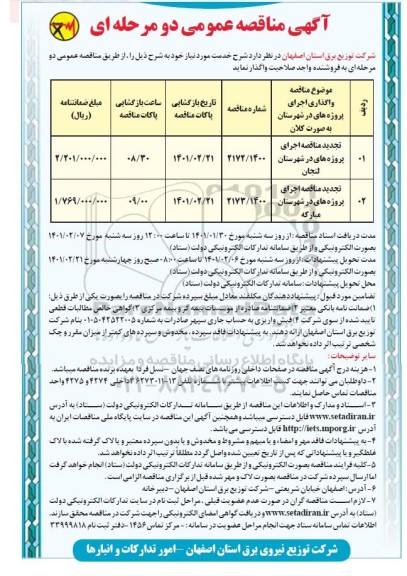 آگهی مناقصه عمومی دو مرحله ای
شرکت توزیع برق استان اصفهان در نظر دارد شرح خدمت مورد نیاز خود به شرح ذیل را، از طریق مناقصه عمومی دو
مرحله ای به فروشنده واجد صلاحیت واگذار نماید
ردیف
موضوع مناقصه واگذاری اجرای پروژه های در شهرستان به صورت کلان
شماره مناقصه
تاریخ بازگشایی پاکات مناقصه
ساعت بازگشایی پاکات مناقصه
مبلغ ضمانتنامه (ریال)
۰۱ تجدید مناقصه اجرای پروژه های در شهرستان لنجان ۲۱۷۲/۱۴۰۰ ۱۴۰۱/۰۲/۲۱ ۰۸/۳۰ ۲/۲۰۱/۰۰۰/۰۰۰
۰۲ تجدید مناقصه اجرای پروژه های در شهرستان مبارکه ۲۱۷۳/۱۴۰۰ ۱۴۰۱/۰۲/۲۱ ۰۹/۰۰ ۱/۷۶۹/۰۰۰/۰۰۰
مدت دریافت اسناد مناقصه : از روز سه شنبه مورخ ۱۴۰۱/۰۱/۳۰ تا ساعت ۱۲:۰۰ روز سه شنبه مورخ ۱۴۰۱/۰۲/۰۷
بصورت الکترونیکی و از طریق سامانه تدارکات الکترونیکی دولت (ستاد)
مدت تحویل پیشنهادات : از روز سه شنبه مورخ ۱۴۰۱/۰۲/۰۶ تا ساعت ۰۸:۰۰ صبح روز چهارشنبه مورخ ۱۴۰۱/۰۲/۲۱
بصورت الکترونیکی و از طریق سامانه تدارکات الکترونیکی دولت (ستاد)
محل تحویل پیشنهادات : سامانه تدارکات الکترونیکی دولت (ستاد)
تضامین مورد قبول : پیشنهاددهندگان مکلفند معادل مبلغ سپرده شرکت در مناقصه را بصورت یکی از طرق ذیل:
تایید شده از سوی شرکت
توزیع برق استان اصفهان ارائه دهند. به پیشنهادات فاقد سپرده، مخدوش و سپرده های کمتر از میزان مقرر و چک
شخصی ترتیب اثر داده نخواهد شد.
سایر توضیحات :
۱- هزینه درج آگهی مناقصه در صفحات داخلی روزنامه های نصف جهان – نسل فردا بعهده برنده مناقصه میباشد.
مناقصات تماس حاصل نمایند.
۳- اسناد و مدارک و اطلاعات این مناقصه از طریق سامانه تدارکات الکترونیکی دولت (ستاد) به آدرس
www.setadiran.ir قابل دسترسی میباشد و همچنین آگهی این مناقصه در سایت پایگاه ملی مناقصات ایران به
آدرس http://iets.mporg.ir قابل دسترسی می باشد.
۴- به پیشنهادات فاقد مهر و امضاء و یا مبهم و مشروط و مخدوش و یا بدون سپرده معتبر و یا لاک گرفته شده با لاک
غلطگیر و یا پیشنهاداتی که پس از تاریخ تعیین شده واصل گردد مطلقا ترتیب اثر داده نخواهد شد.
۵- کلیه فرایند مناقصه بصورت الکترونیکی و از طریق سامانه تدارکات الکترونیکی دولت (ستاد) انجام خواهد گرفت
اما ارسال سپرده شرکت در مناقصه بصورت لاک و مهر شده قبل از برگزاری مناقصه الزامی است.
۶- آدرس : اصفهان خیابان شریعتی – شرکت توزیع برق استان اصفهان – دبیرخانه
۷- لازم است مناقصه گران در صورت عدم عضویت قبلی، مراحل ثبت نام در سایت تدارکات الکترونیکی دولت
(ستاد) به آدرس www.setadiran.ir و دریافت گواهی امضای الکترونیکی را جهت شرکت در مناقصه محقق سازند.
اطلاعات تماس سامانه ستاد جهت انجام مراحل عضویت در سامانه : - مرکز تماس ۱۴۵۶ - دفتر ثبت نام ۳۳۹۹۹۸۱۸
شرکت توزیع نیروی برق استان اصفهان – امور تدارکات و انبارها